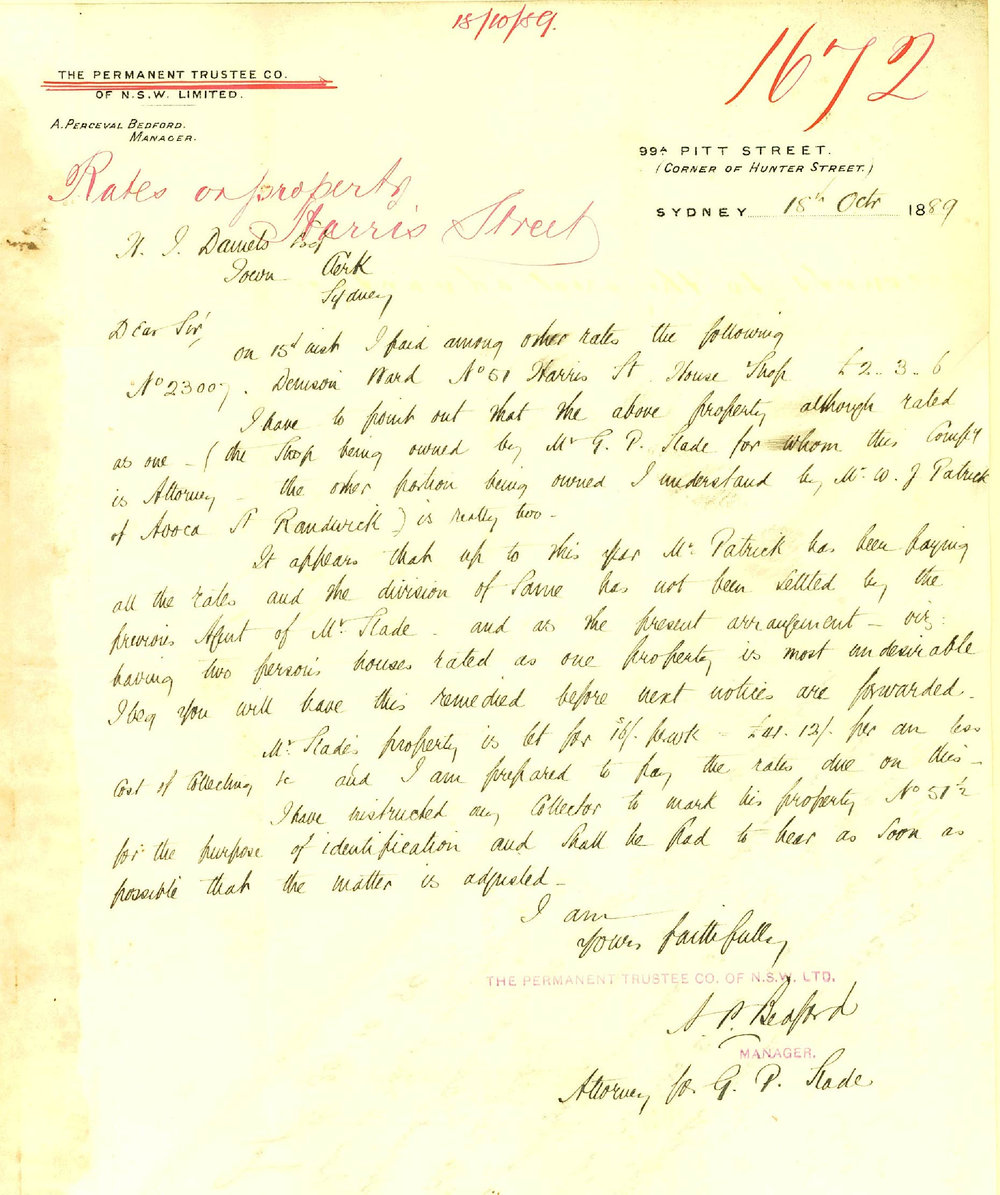 18/10/89.
1672
THE PERMANENT TRUSTEE CO.
OF N.S.W. LIMITED.
A. PERCEVAL BEDFORD.
MANAGER.
99A PITT STREET.
(CORNER OF HUNTER STREET.)
Rates on property
Harris Street
SYDNEY 18th Octr 1889
H. J. Daniels Esq
Town Clerk
Sydney
Dear Sir,
On 15th inst I paid among other rates the following
No 23007. Denison Ward No 51 Harris St House Shop £2-3-6
I have to point out that the above property although rated
as one - (the Shop being owned by Mr G. P. Slade for whom this Compy
is Attorney - the other portion being owned I understand by Mr W. J Patrick
of Avoca St Randwick) is really two -
It appears that up to this year Mr Patrick has been paying
all the rates and the division of same has not been settled by the
previous Agent of Mr Slade - and as the present arrangement - viz:
having two person's houses rated as one property is most undesirable
I beg you will have this remedied before next notices are forwarded -
Mr Slade's property is let for 16/- per wk - £41.12/- per an less
Cost of Collecting &c and I am prepared to pay the rates due on this -
I have instructed my Collector to mark his property No 51½
for the purpose of identification and shall be glad to hear as soon as
possible that the matter is adjusted -
I am
Yours faithfully
THE PERMANENT TRUSTEE CO. OF N.S.W. LTD.
A. P. Bedford
MANAGER.
Attorney for G. P. Slade